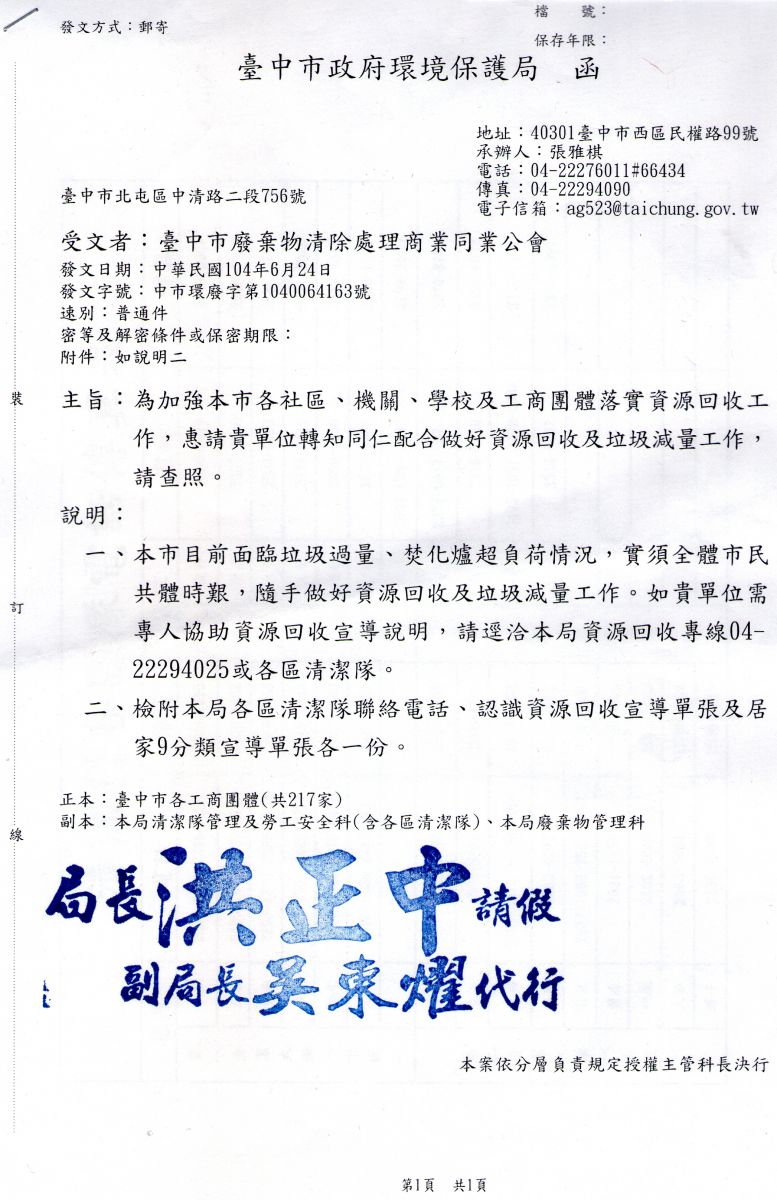 檔　　號：
發文方式：郵寄
保存年限：
臺中市政府環境保護局　函
地址：40301臺中市西區民權路99號
承辦人：張雅棋
電話：04-22276011#66434
傳真：04-22294090
電子信箱：ag523@taichung.gov.tw
臺中市北屯區中清路二段756號
受文者：臺中市廢棄物清除處理商業同業公會
發文日期：中華民國104年6月24日
發文字號：中市環廢字第1040064163號
速別：普通件
密等及解密條件或保密期限：
附件：如說明二
主旨：為加強本市各社區、機關、學校及工商團體落實資源回收工
作，惠請貴單位轉知同仁配合做好資源回收及垃圾減量工作，
請查照。
說明：
一、本市目前面臨垃圾過量、焚化爐超負荷情況，實須全體市民
共體時艱，隨手做好資源回收及垃圾減量工作。如貴單位需
專人協助資源回收宣導說明，請逕洽本局資源回收專線04-
22294025或各區清潔隊。
二、檢附本局各區清潔隊聯絡電話、認識資源回收宣導單張及居
家9分類宣導單張各一份。
正本：臺中市各工商團體(共217家)
副本：本局清潔隊管理及勞工安全科(含各區清潔隊)、本局廢棄物管理科
裝
訂
線
局長洪正中請假
副局長吳東燿代行
本案依分層負責規定授權主管科長決行
第1頁　共1頁